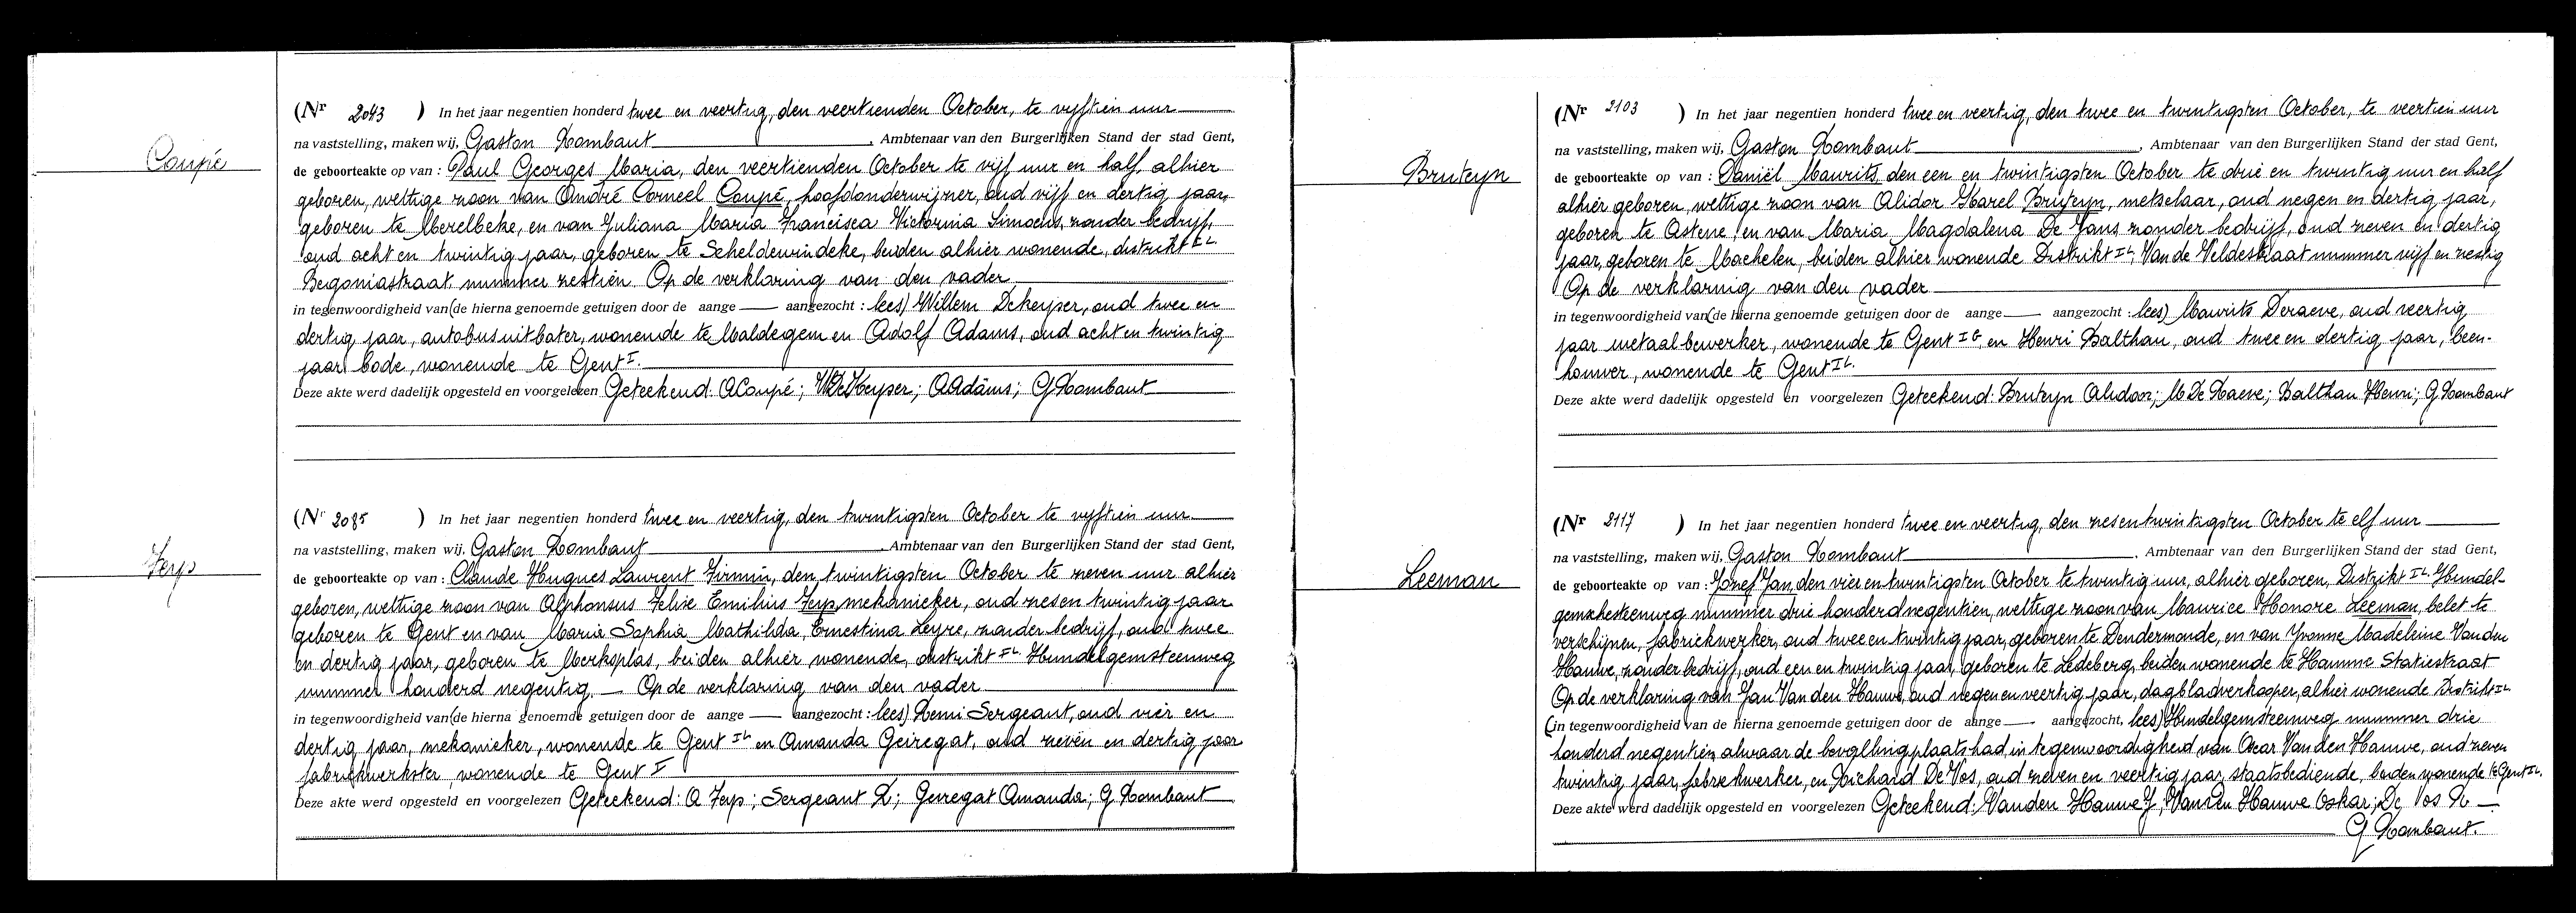 Coupé
(Nr 2043 ) In het jaar negentien honderd twee en veertig, den veertienden October, te vijftien uur
na vaststelling, maken wij, Gaston Rombaut, Ambtenaar van den Burgerlijken Stand der stad Gent,
de geboorteakte op van : Paul Georges Maria, den veertienden October te vijf uur en half, alhier
geboren, wettige zoon van André Corneel Coupé, hoofdonderwijzer, oud vijf en dertig jaar,
geboren te Merelbeke, en van Juliana Maria Francisca Victorina Simoens, zonder bedrijf,
oud acht en twintig jaar, geboren te Scheldewindeke, beiden alhier wonende, distrikt IL
Begoniastraat, nummer zestien. Op de verklaring van den vader
in tegenwoordigheid van (de hierna genoemde getuigen door de aange — aangezocht : lees) Willem Dekeyser, oud twee en
dertig jaar, autobusuitbater, wonende te Maldegem en Adolf Adams, oud acht en twintig
jaar, bode, wonende te Gent I.
Deze akte werd dadelijk opgesteld en voorgelezen Geteekend: ACoupé; WDeKeyser; AAdams; G Rombaut
Feys
(Nr 2085 ) In het jaar negentien honderd twee en veertig, den twintigsten October te vijftien uur
na vaststelling, maken wij, Gaston Rombaut, Ambtenaar van den Burgerlijken Stand der stad Gent,
de geboorteakte op van : Claude Hugues Laurent Firmin, den twintigsten October te zeven uur alhier
geboren, wettige zoon van Alphonsus Felix Emilius Feys, mekanieker, oud zesen twintig jaar
geboren te Gent en van Maria Sophia Mathilda, Ernestina Leyre, zonder bedrijf, oud twee
en dertig jaar, geboren te Merksplas, beiden alhier wonende, distrikt IL. Hundelgemsteenweg
nummer honderd negentig. — Op de verklaring van den vader
in tegenwoordigheid van (de hierna genoemde getuigen door de aange — aangezocht : lees) Remi Sergeant, oud vier en
dertig jaar, mekanieker, wonende te Gent IL en Amanda Geiregat, oud zeven en dertig jaar
fabriekwerkster, wonende te Gent I
Deze akte werd opgesteld en voorgelezen Geteekend: A Feys; Sergeant R; Geiregat Amanda; G. Rombaut
Bruteyn
(Nr 2103 ) In het jaar negentien honderd twee en veertig, den twee en twintigsten October, te veertien uur
na vaststelling, maken wij, Gaston Rombaut, Ambtenaar van den Burgerlijken Stand der stad Gent,
de geboorteakte op van : Daniël Maurits, den een en twintigsten October te drie en twintig uur en half
alhier geboren, wettige zoon van Alidor Karel Bruteyn, metselaar, oud negen en dertig jaar,
geboren te Astene, en van Maria Magdalena De Jans zonder bedrijf, oud zeven en dertig
jaar, geboren te Machelen, beiden alhier wonende Distrikt IL, Van de Veldestraat nummer vijf en zestig
Op de verklaring van den vader
in tegenwoordigheid van (de hierna genoemde getuigen door de aange — aangezocht : lees) Maurits Deraeve, oud veertig
jaar metaalbewerker, wonende te Gent IG, en Henri Balthau, oud twee en dertig jaar, been-
houwer, wonende te Gent IL.
Deze akte werd dadelijk opgesteld en voorgelezen Geteekend: Bruteyn Alidoor; M De Raeve; Balthau Henri; G. Rombaut
Leeman
(Nr 2117 ) In het jaar negentien honderd twee en veertig, den zesentwintigsten October te elf uur
na vaststelling, maken wij, Gaston Rombaut, Ambtenaar van den Burgerlijken Stand der stad Gent,
de geboorteakte op van : Jozef Jan, den vier en twintigsten October te twintig uur, alhier geboren, Distrikt IL. Hundel-
gemschesteenweg nummer drie honderd negentien, wettige zoon van Maurice Honore Leeman, belet te
verschijnen, fabriekwerker, oud twee en twintig jaar, geboren te Dendermonde, en van Yvonne Madeleine Vanden
Hauwe, zonder bedrijf, oud een en twintig jaar, geboren te Ledeberg, beiden wonende te Hamme Statiestraat
Op de verklaring van Jan Van den Hauwe, oud negen en veertig jaar, dagbladverkooper, alhier wonende Distrikt IL
(in tegenwoordigheid van de hierna genoemde getuigen door de aange — aangezocht, lees) Hundelgemsteenweg nummer drie
honderd negentien, alwaar de bevalling plaats had in tegenwoordigheid van Oscar Van den Hauwe, oud zeven
twintig jaar, fabriekwerker, en Richard De Vos, oud zeven en veertig jaar, staatsbediende, beiden wonende te Gent IL.
Deze akte werd dadelijk opgesteld en voorgelezen Geteekend: Vanden Hauwe J; Vanden Hauwe Oskar; De Vos R —
G Rombaut.